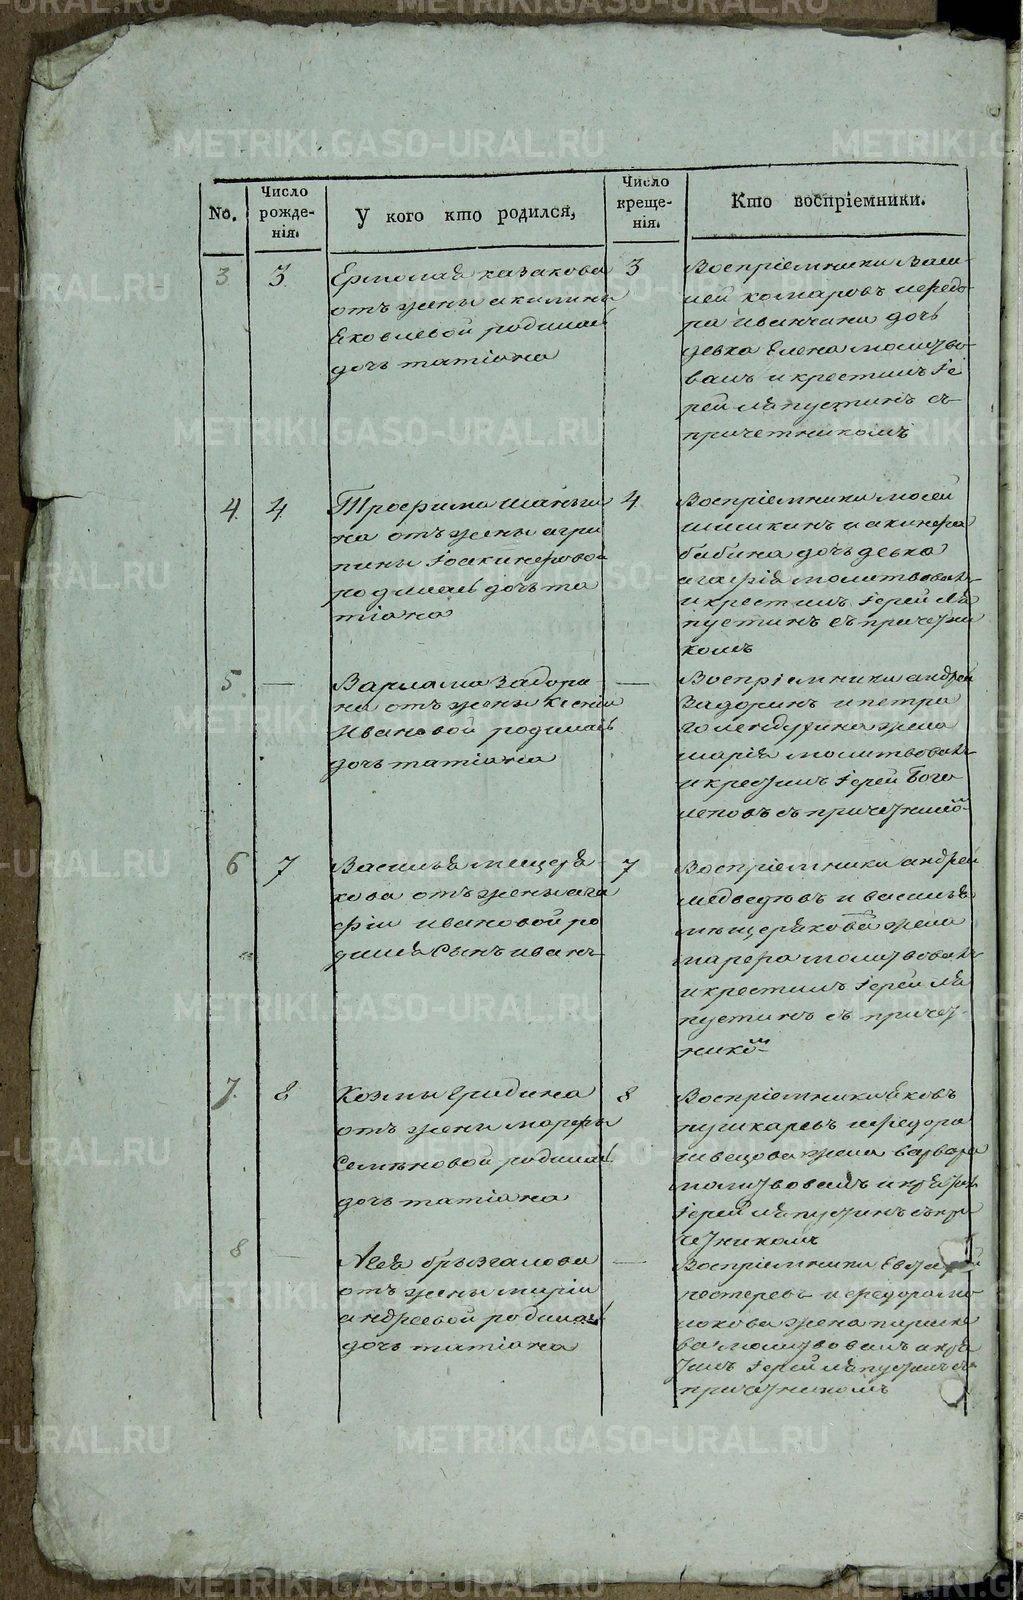 No.
Число рожде-нія.
У кого кто родился,
Число креще-нія.
Кто воспріемники.
3
3
Ермолая казакова
отъ жены акилины
Яковлевой родилась
дочь татіана
3
Воспріемники васи-
лей комаровъ ифедо-
ра иванчина дочь
девка Елена молитво-
валъ и крестилъ Іе
рей лапустинъ съ
причетникомъ
4
4
Трофима шаньги
на отъ жены агри
пины Іоакинфово
родилась дочь та
тіана
4
Воспріемники мосей
шишкинъ и акинфа
бабина дочь девка
агафія молитвовалъ
и крестилъ Іерей Ла
пустинъ съ причетни
комъ
5
—
Варлама Задори
на отъ жены Ксеніи
Ивановой родилась
дочь татіана
—
Воспріемники андрей
Задоринъ ипетра
жена
марія молитвовалъ
и крестилъ Іерей Бого
леповъ съ причетником
6
7
Василья мещеря
кова отъ жены ага
фіи ивановой ро
дился Сынъ иванъ
7
Воспріемники андрей
медведювъ и василья
мещерякова жена
марфа молитвовалъ
и крестилъ Іерей ла
пустинъ съ причет-
ником
7
8
Козмы Гридина
отъ жены марфы
Семеновой родилась
дочь татіана
8
Воспріемники Яковъ
пушкаревъ ифедора
швецова жена варвара
молитвовалъ и крестилъ
Іерей лапустинъ съ при
четникомъ
8
—
Лва брызгалова
отъ жены маріи
андреевой родилась
дочь татіана
—
Воспріемники
нестеровъ и федора мо
локова жена параске
ва молитвовалъ икре
тилъ Іерей лапустинъ съ
причетникомъ
METRIKI.GASO-URAL.RU